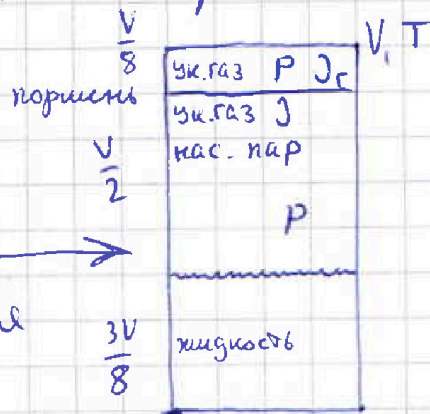 V/8
V, T
ук. газ P ν_г
поршень
ук. газ ν
нас. пар
V/2
P
я
3V/8
жидкость